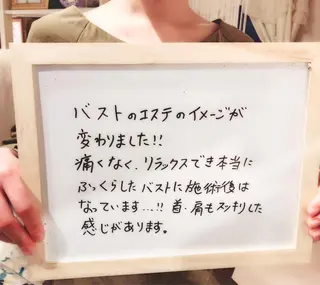 バストのエステのイメージが
変わりました!!
痛くなく、リラックスでき本当に
ふっくらしたバストに施術後は
なっています…!! 首・肩もスッキリした
感じがあります。